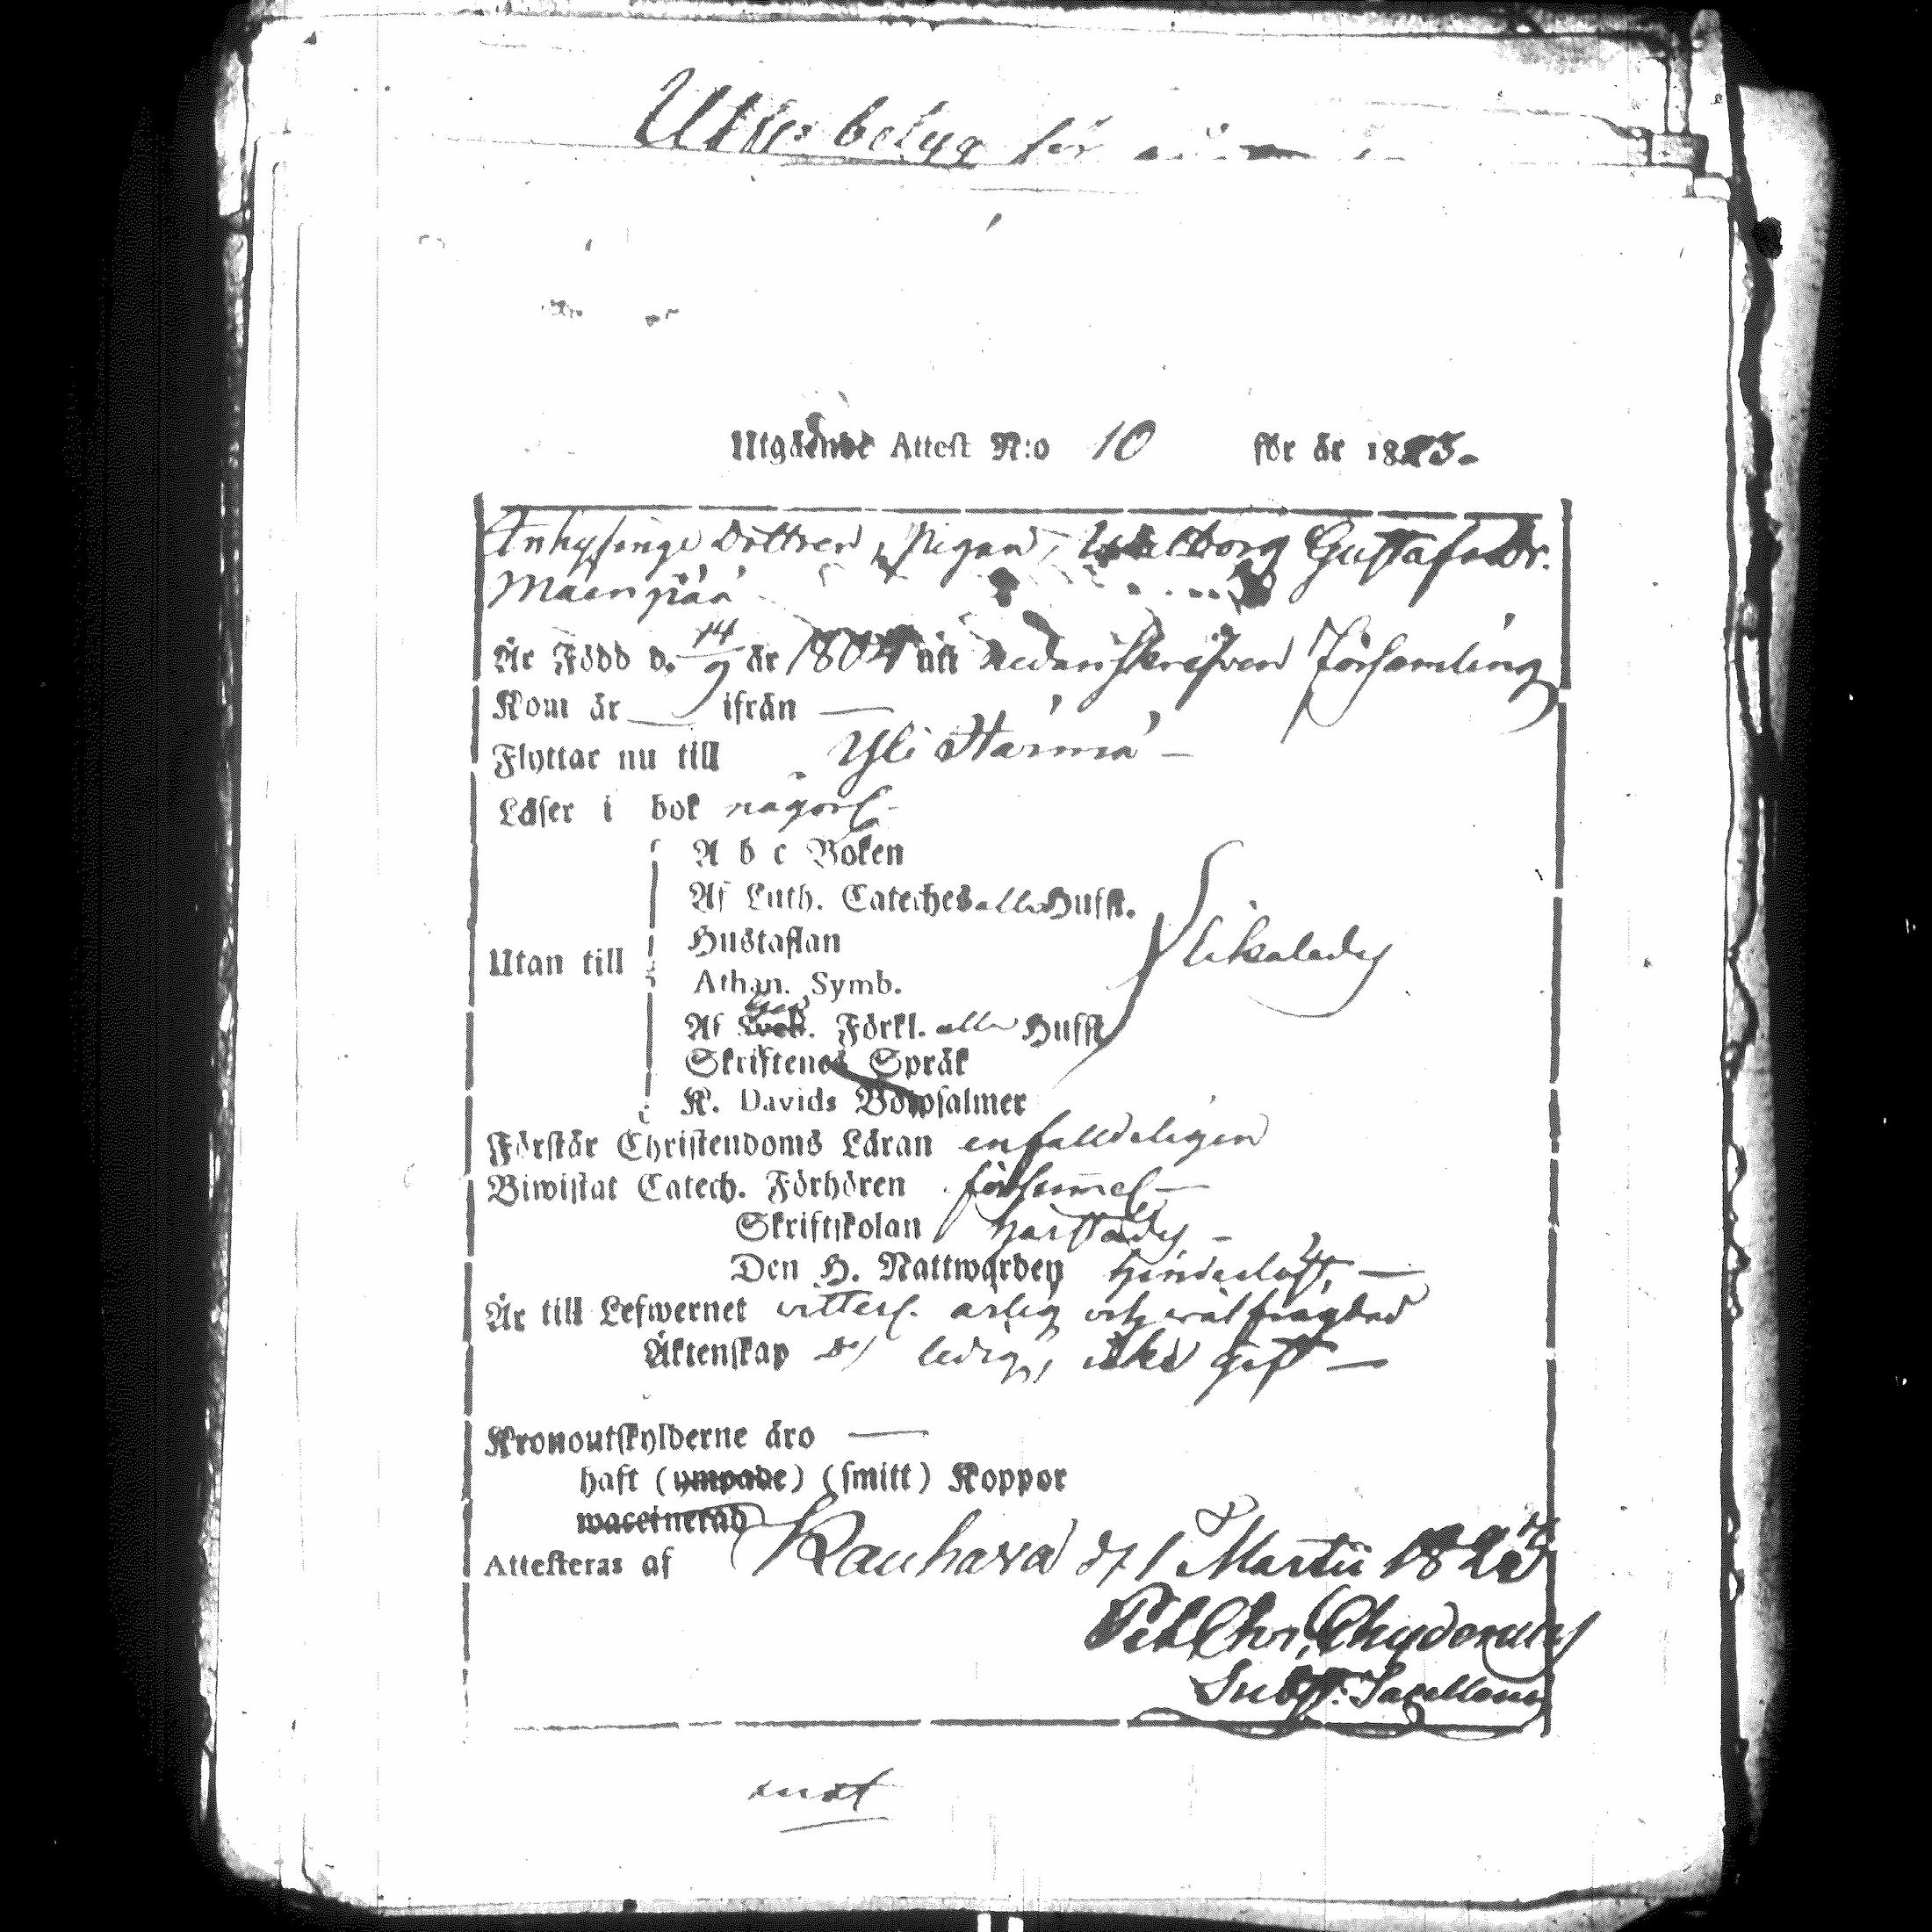 betyg för
Utgående Attest N:o 10 för år 1825.
Inhysinge Dottren, Pigan, Walborg Gustafsdr.
Mäenpää
Är Född d. 14/9 år 1804 uti nedanskrefven Församling
Kom år — ifrån —
Flyttar nu till Yli Härmä —
Läser i bok någorl.
A b c Boken
Af Luth. Cateches alla Hufst.
Hustaflan
Utan till likaledes
Athan. Symb.
Af Förkl. alla Hufst.
Skriftenes Språk
K. Davids Botpsalmer
Förstår Christendoms Läran enfalldeligen
Biwistat Catech. Förhören försuml. —
Skriftskolan härstädes —
Den H. Nattwarden —
Är till Lefwernet ärlig och wälfrägdad
Äktenskap ledig, icke gift —
Kronoutskylderne äro —
haft (ympade) (smitt) Koppor
waccinerad
Attesteras af Kauhava d. 1 Martii 1825
Pet. Chr. Chydenius
Sacellan